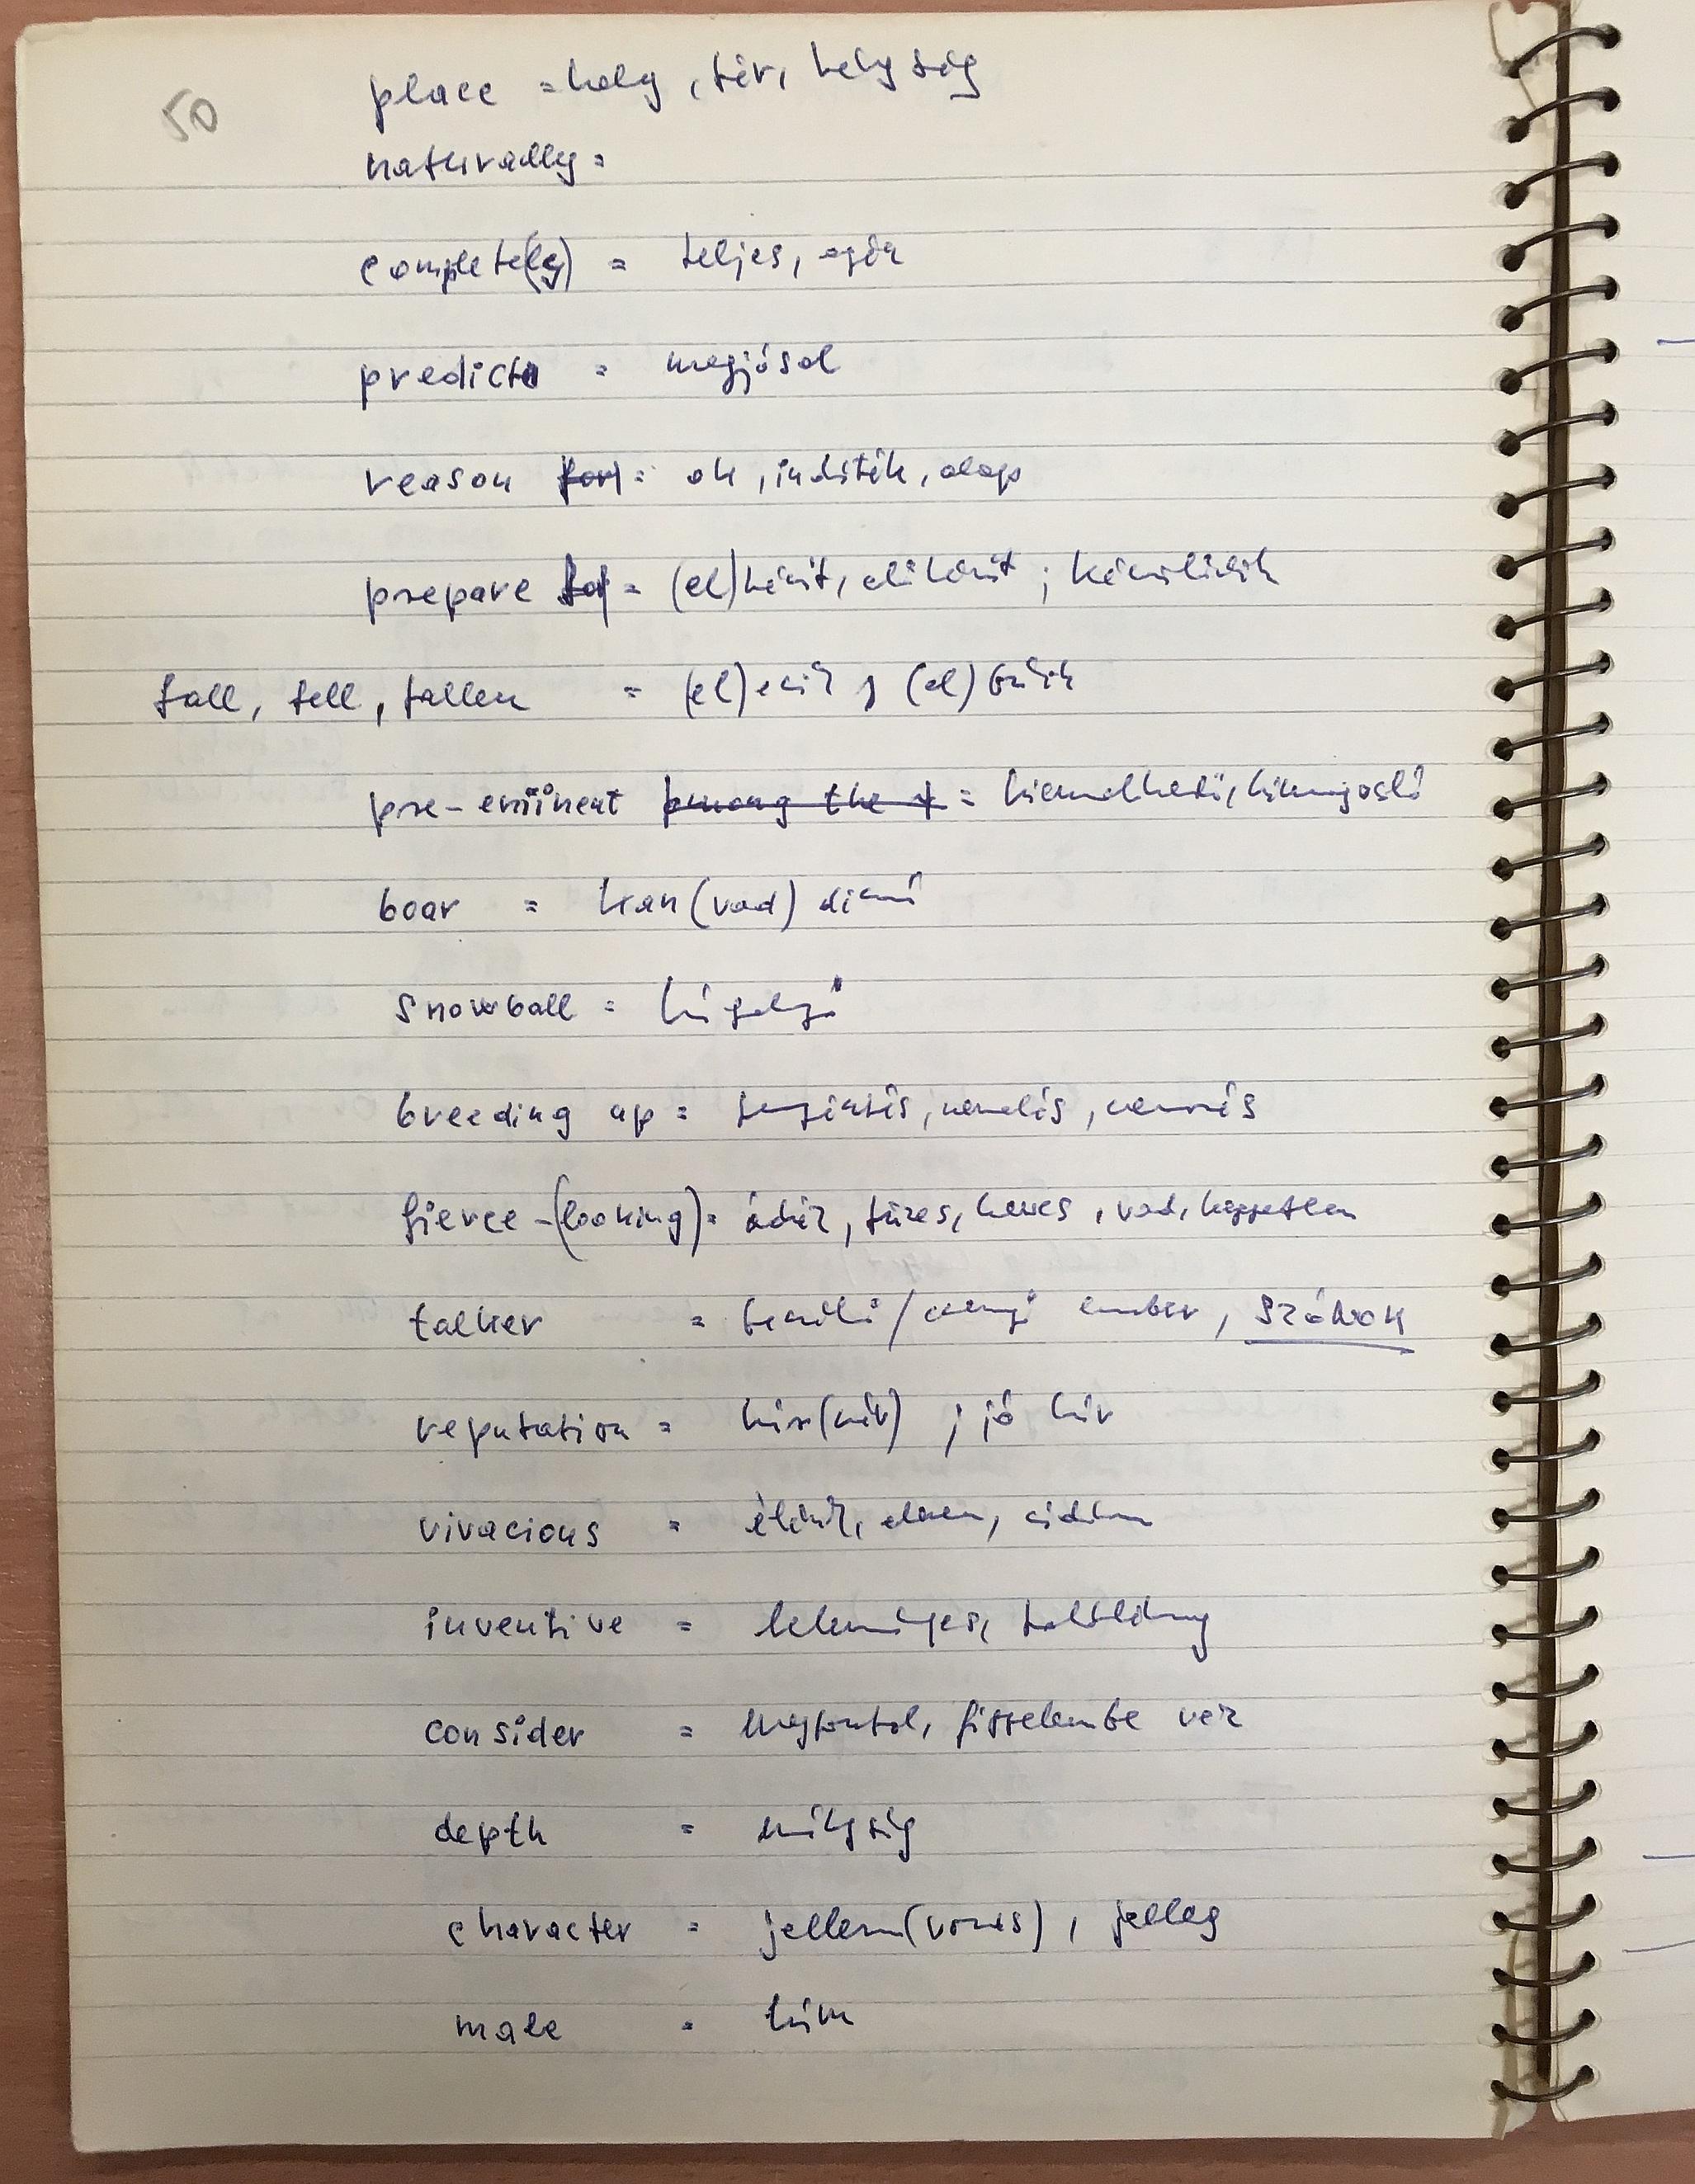 50
place = hely, tér, helység
naturally =
complete(ly) = teljes, egész
predict = megjósol
reason for = ok, indíték, alap
prepare for = (el)készít, előkészít ; készülődik
fall, fell, fallen = (el)esik ; (el)bukik
pre-eminent among the = kiemelkedő, kimagasló
boar = kan (vad) disznó
snowball = hógolyó
breeding up = tenyésztés, nevelés,
fierce-(looking) = ádáz, tüzes, heves, vad, kegyetlen
talker = beszélő / csevegő ember, szónok
reputation = hír(név) ; jó hír
vivacious = élénk, eleven,
inventive = leleményes, találékony
consider = megfontol, figyelembe vesz
depth = mélység
character = jellem(vonás), jelleg
male = hím